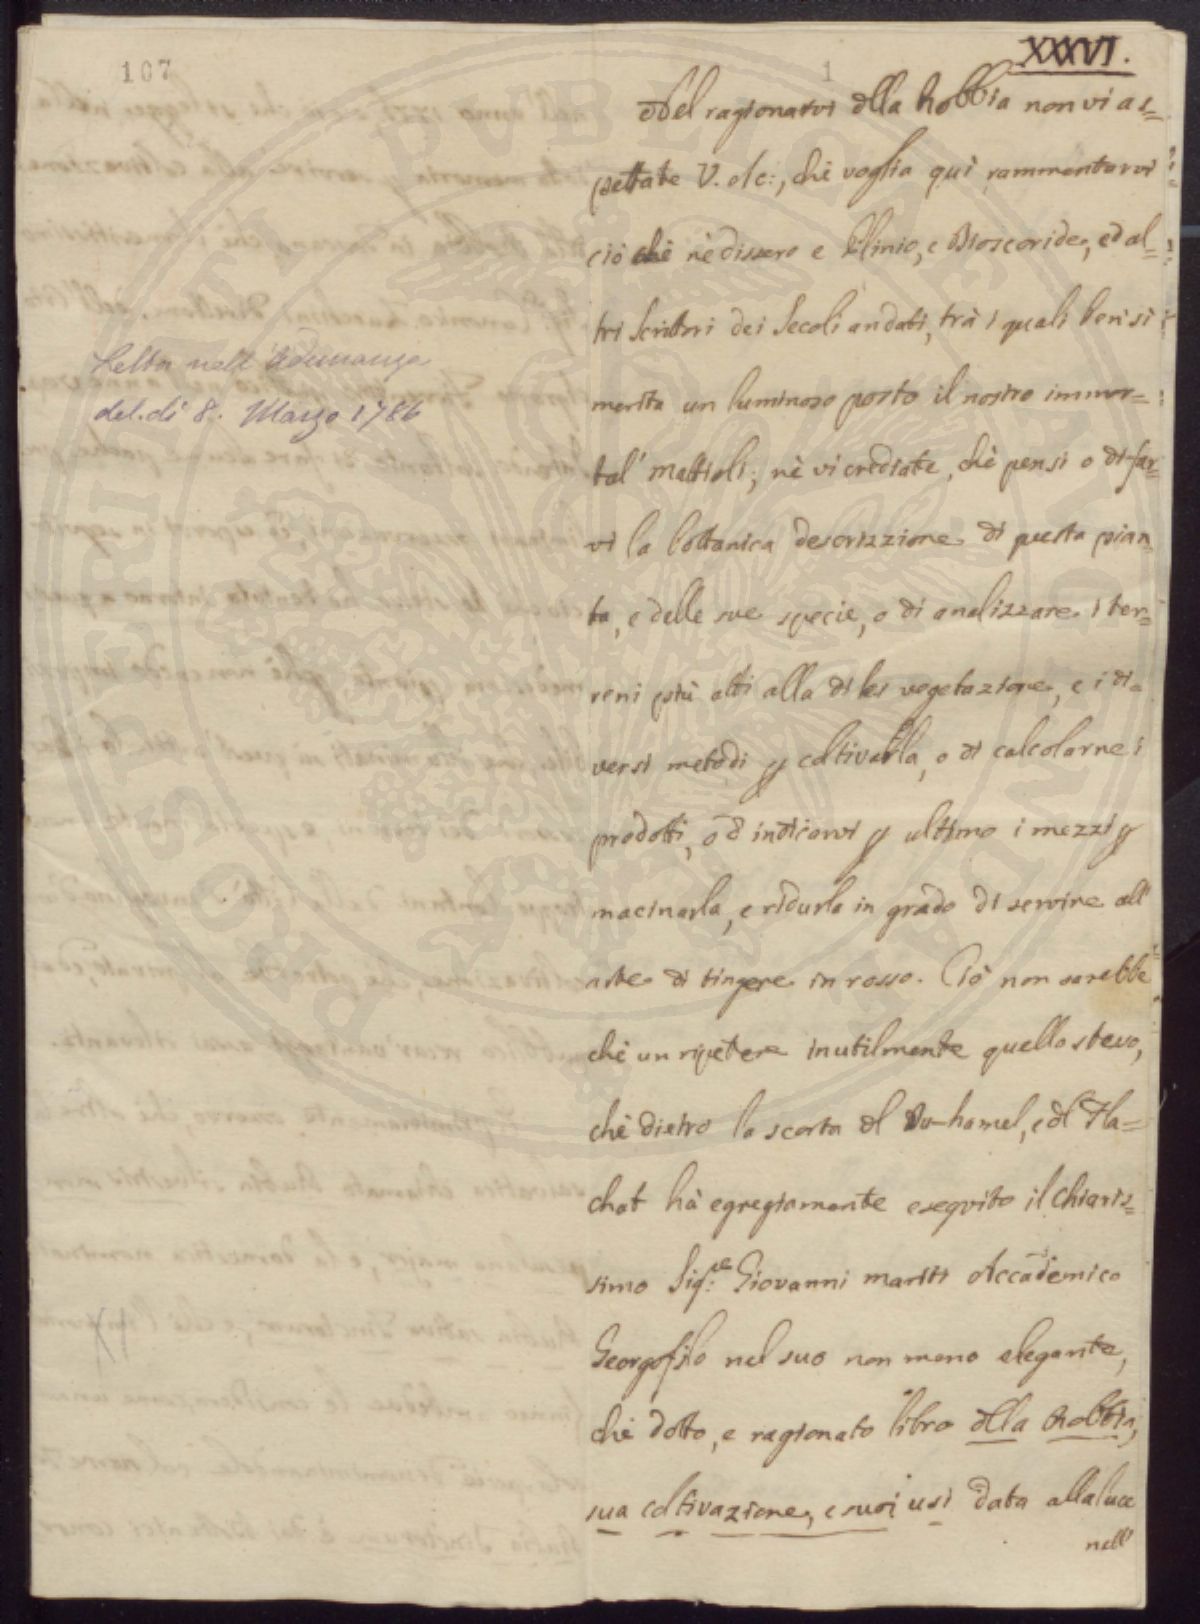 107
1
XXXVI.
Letta nell' Adunanza
del dì 8. Marzo 1786
Del ragionarvi dlla Robbia non vi as=
pettate V. etc:, chè voglia quì rammentarvi
ciò chè nè dissero e Plinio, e Dioscoride, ed al=
tri Scrittori dei Secoli andati, trà i quali bensì
merita un luminoso posto il nostro immor=
tal' Mattioli; nè vi crediate, chè pensi o di far=
vi la bottanica descrizzione di questa pian=
ta, e delle sue specie, o di analizzare i ter=
reni più atti alla di lei vegetazione, e i di=
versi metodi p coltivarla, o di calcolarne i
prodotti, o d indicarvi p ultimo i mezzi p
macinarla, e ridurla in grado di servire all'
arte di tingere in rosso. Ciò non sarebbe
chè un ripetere inutilmente quello stesso,
chè dietro la scorta dl Du-hamel, e dl Fla=
chat hà egregiamente eseguito il chiaris=
simo Sig:re Giovanni Mariti Accademico
Georgofilo nel suo non meno elegante,
chè dotto, e ragionato libro dlla Robbia,
sua coltivazione, e suoi usi data alla luce
nell'
PROSPERITATI PUBLICAE AUGENDAE